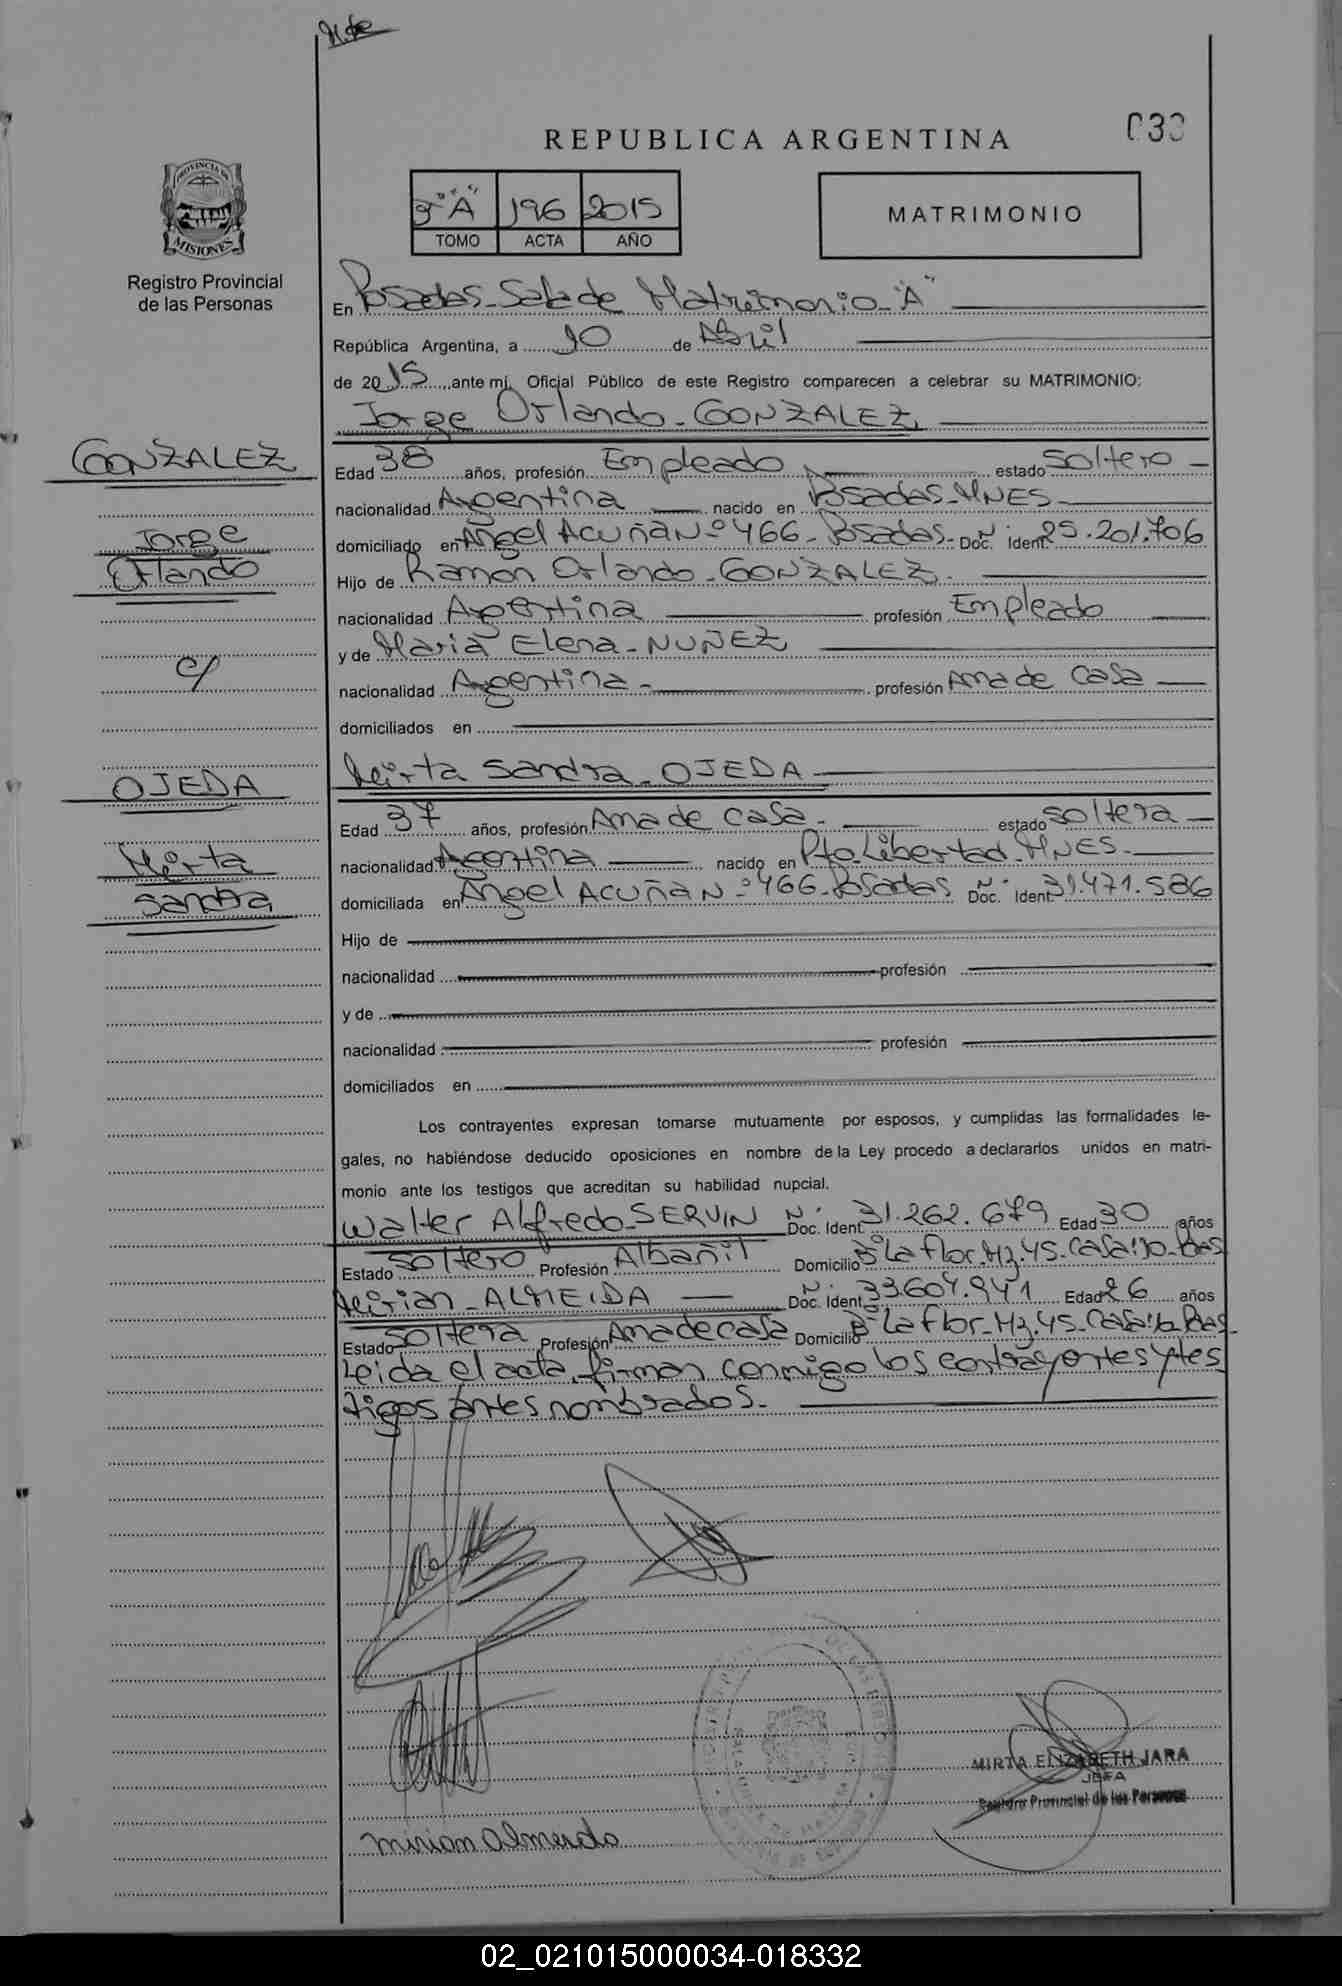 REPUBLICA ARGENTINA
TOMO ACTA AÑO
"A" 196 2015
MATRIMONIO
PROVINCIA DE
MISIONES
Registro Provincial
de las Personas
En Posadas-Sala de Matrimonio-"A"
República Argentina, a 10 de Abril
de 2015 ante mi, Oficial Público de este Registro comparecen a celebrar su MATRIMONIO:
Jorge Orlando-GONZALEZ
GONZALEZ
Jorge
Orlando
c/
OJEDA
Mirta
Sandra
Edad 38 años, profesión Empleado estado soltero
nacionalidad Argentina nacido en Posadas-MNES-
domiciliado en Angel Acuña Nº 466-Posadas- Doc. Ident. Nº 25.201.706
Hijo de Ramón Orlando-GONZALEZ-
nacionalidad Argentina profesión Empleado
y de Maria Elena-NUÑEZ
nacionalidad Argentina- profesión Ama de Casa
domiciliados en
Mirta Sandra-OJEDA
Edad 37 años, profesión Ama de casa- estado soltera
nacionalidad Argentina nacido en Pto-Libertad-MNES-
domiciliada en Angel Acuña Nº 466-Posadas Doc. Ident. Nº 31.471.586
Hijo de
nacionalidad profesión
y de
nacionalidad profesión
domiciliados en
Los contrayentes expresan tomarse mutuamente por esposos, y cumplidas las formalidades le-
gales, no habiéndose deducido oposiciones en nombre de la Ley procedo a declararlos unidos en matri-
monio ante los testigos que acreditan su habilidad nupcial.
Walter Alfredo-SERVIN Doc. Ident. Nº 31.262.679 Edad 30 años
Estado soltero Profesión Albañil Domicilio Bº La flor-Mz.45-Casa:10-Pas
Mirian-ALMEIDA Doc. Ident. Nº 33.604.941 Edad 26 años
Estado soltera Profesión Ama de casa Domicilio Bº La flor-Mz.45-Casa:10-Pas-
Leida el acta, firman conmigo los contrayentes y tes
tigos antes nombrados-
MIRTA ELIZABETH JARA
JEFA
Registro Provincial de las Personas
02_021015000034-018332